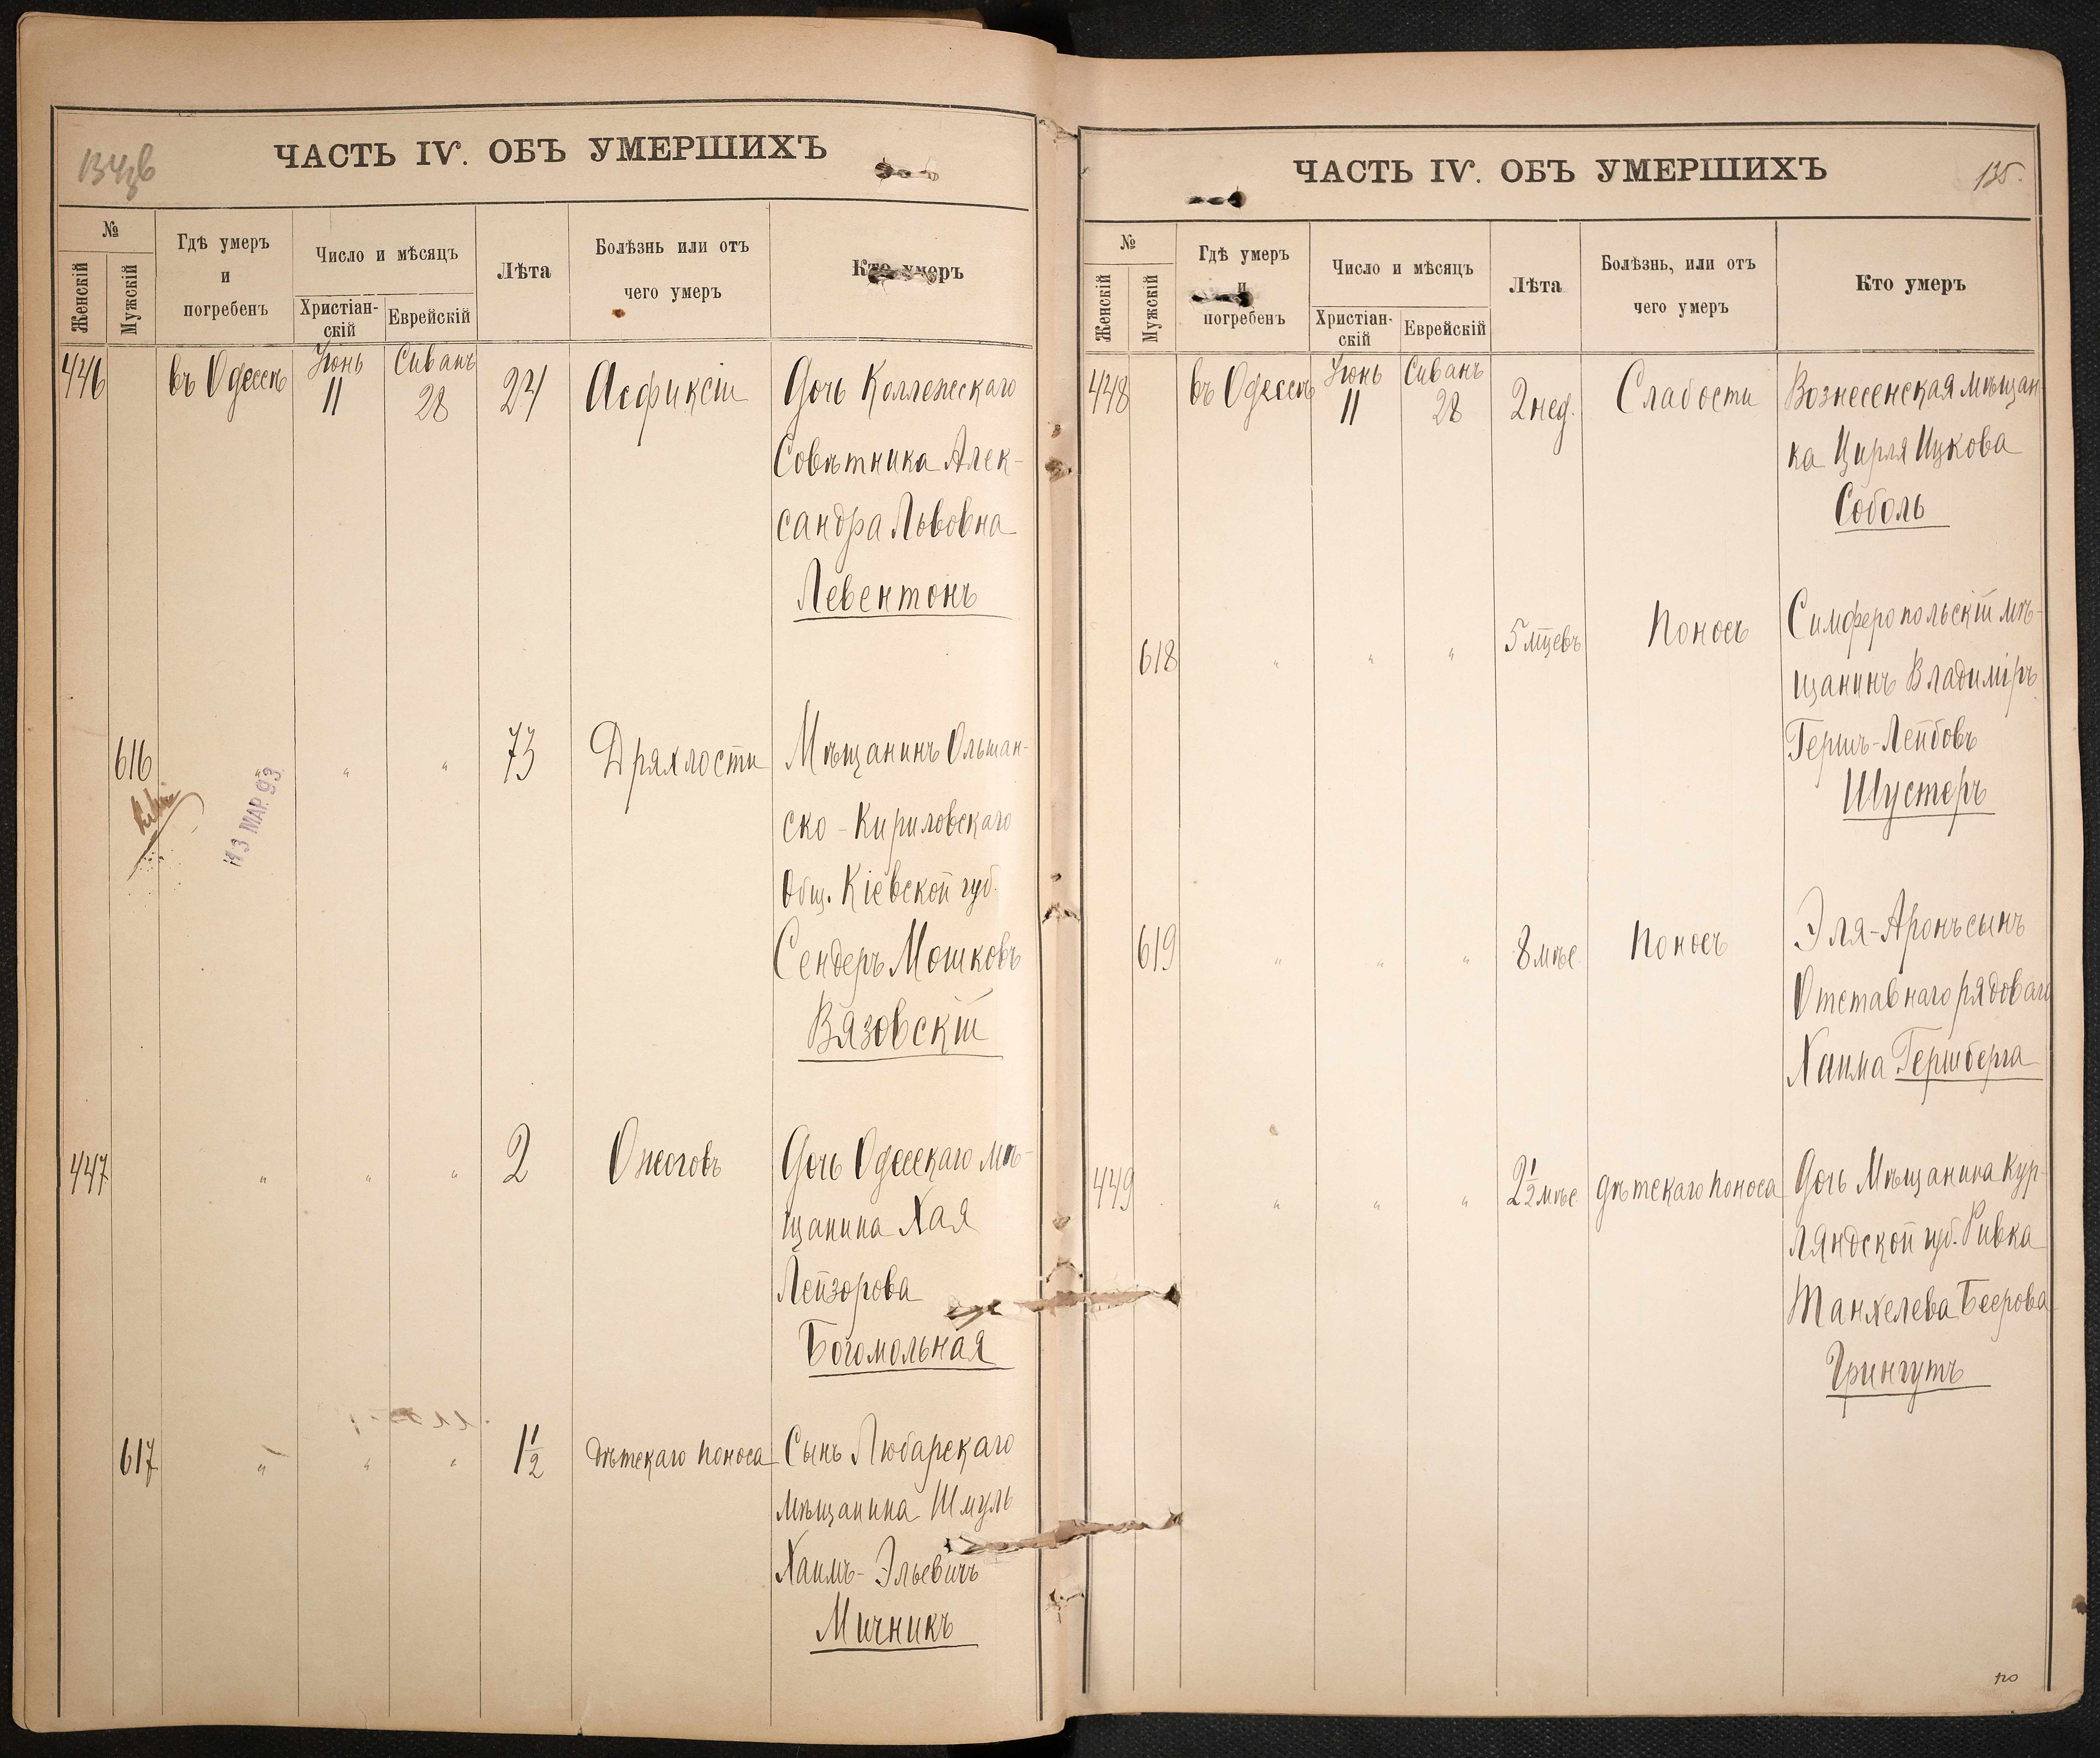 ЧАСТЬ IV. ОБЪ УМЕРШИХЪ
№
Женскій
Мужскій
Гдѣ умеръ
и
погребенъ
Число и мѣсяцъ
Христіан-
скій
Еврейскій
Лѣта
Болѣзнь или отъ
чего умеръ
Кто умеръ
446 въ Одессѣ Іюнь 11 Сиванъ 28 24 Асфиксіи Дочь Коллежскаго
Совѣтника Алек-
сандра Львовна
Левентонъ
616 " " " 73 Дряхлости Мѣщанинъ Ольшан-
ско-Кириловскаго
Общ. Кіевской губ.
Сендеръ Мошковъ
Вязовскій
13 МАР. 93
447 " " " 2 Ожоговъ Дочь Одесскаго мѣ-
щанина Хая
Лейзорова
Богомольная
617 " " " 1 1/2 Дѣтскаго поноса Сынъ Любарскаго
мѣщанина Шмуль
Хаимъ-Эльевичъ
Мичникъ
ЧАСТЬ IV. ОБЪ УМЕРШИХЪ
135.
№
Женскій
Мужскій
Гдѣ умеръ
и
погребенъ
Число и мѣсяцъ
Христіан-
скій
Еврейскій
Лѣта
Болѣзнь, или отъ
чего умеръ
Кто умеръ
448 въ Одессѣ Іюнь 11 Сиванъ 28 2 нед. Слабости Вознесенская мѣщан-
ка Цирля Ицкова
Соболь
618 " " " 5 мцевъ Поносъ Симферопольскій мѣ-
щанинъ Владиміръ
Гершъ-Лейбовъ
Шустеръ
619 " " " 8 мѣс. Поносъ Эля-Аронъ сынъ
Отставнаго рядоваго
Хаима Гершберга
449 " " " 2 1/2 мѣс. Дѣтскаго поноса Дочь Мѣщанина Кур-
ляндской губ. Ривка
Танхелева Беерова
Грингутъ